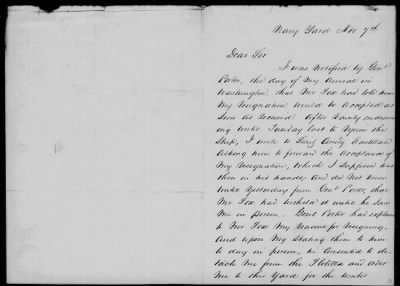 Navy Yard Nov 7th
Dear Sir
I was notified by Genl
Porter, the day of my arrival in
Washington, that Mr Fox had told him
my resignation would be accepted as
soon as received. After vainly endeavor
ing until Tuesday last to rejoin the
Ship, I wrote to Lieut Comdg
asking him to forward the acceptance of
my resignation, which I supposed was
then in his hands, and did not know
until yesterday from Genl Porter, that
Mr Fox had withheld it until he saw
me in person. Genl Porter had explained
to Mr Fox my reasons for resigning,
and upon my stating them to him
to day in person, he consented to de-
tach me from the and order
me to this Yard for the winter